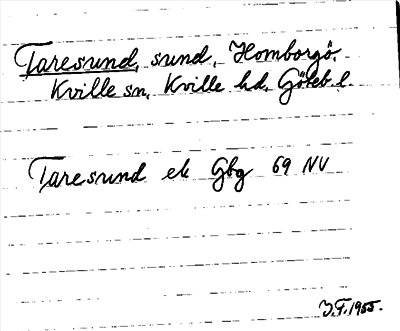 Taresund, sund, Homborgö.
Kville sn, Kville hd, Göteb. l.
Taresund ek Gbg 69 NV
J.F. 1955.